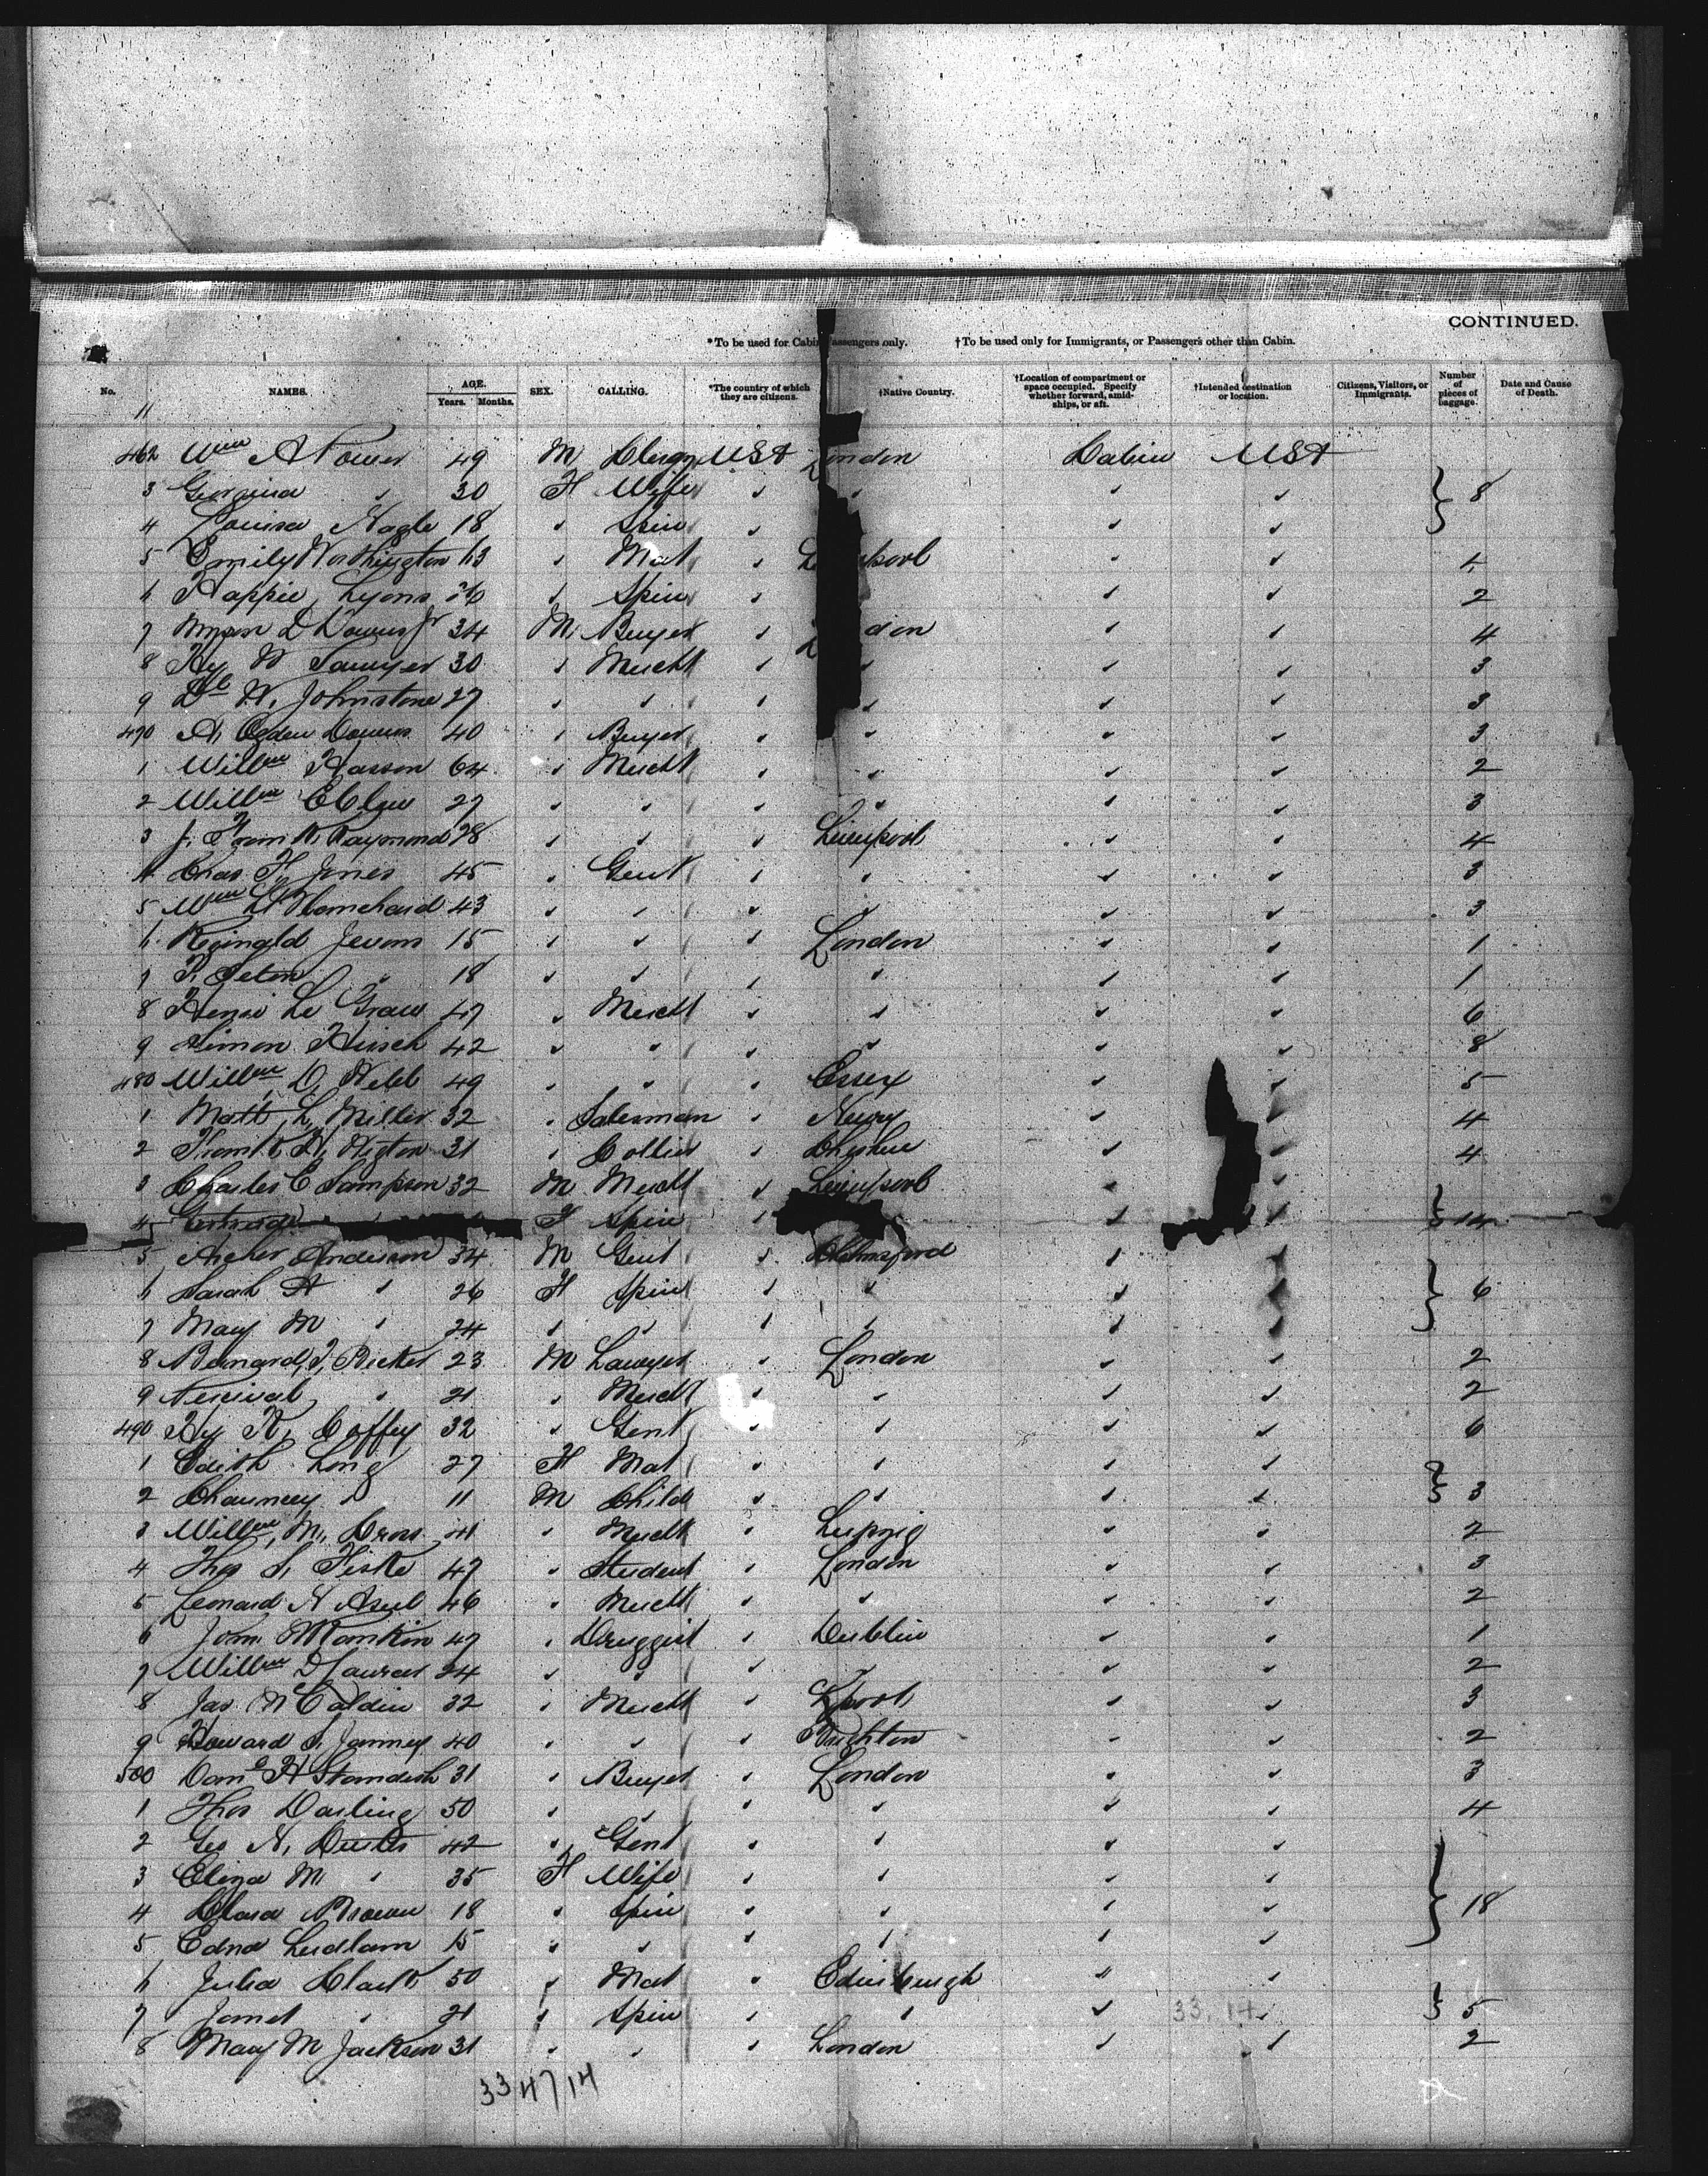 CONTINUED.
*To be used for Cabin Passengers only. †To be used only for Immigrants, or Passengers other than Cabin.
No. NAMES. AGE. Years. Months. SEX. CALLING. *The country of which they are citizens. †Native Country. †Location of compartment or space occupied. Specify whether forward, amid-ships, or aft. †Intended destination or location. Citizens, Visitors, or Immigrants. Number of pieces of baggage. Date and Cause of Death.
11
462 Wm A Power 49 M Clergy USA London Cabin USA
3 Georgina " 30 F Wife " " " " 8
4 Louisa Nagle 18 " Spin " " "
5 Emily Worthington 63 " Mat " Liverpool " " 4
6 Happie Lyons 26 " Spin " " " 2
7 Myson D Downs Jr 34 M Buyer " London " " 4
8 Hy W Sawyer 30 " Mercht " " " " 3
9 W. Johnstone 27 " " " " " " 3
470 A. Ogden Downs 40 " Buyer " " " " 3
1 Willm Hasson 64 " Mercht " " " " 2
2 Willm 27 " " " " " " 3
3 J. Raymond 28 " " " Liverpool " " 4
4 Chas F. Jones 45 " Gent " " " " 3
5 Wm Blanchard 43 " " " " " " 3
6 Reginald Jevons 15 " " " London " " 1
7 F. Seton " 18 " " " " " " 1
8 Henri Le 47 " Mercht " " " " 6
9 Simon Hirsch 42 " " " " " " 8
480 Willm D. Webb 49 " " " Essex " " 5
1 Matt L. Miller 32 " Salesman " Newry " " 4
2 Higton 31 " Collier " Cheshire " " 4
3 Charles C Sampson 32 M Mercht " Liverpool " "
4 Gertrude F Spin " " " 14
5 Archer Anderson 34 M Gent " Chelmsford " "
6 Sarah A " 26 F Spin " " " " 6
7 Mary M " 24 " " " " " "
8 Bernard J. Ricker 23 M Lawyer " London " " 2
9 Percival " 21 " Mercht " " " " 2
490 Hy K. Coffey 32 " Gent " " " " 6
1 Edith Long 27 F Mat " " " "
2 Chauncey " 11 M Child " " " " 3
3 Willm M. Cross 41 " Mercht " Leipzig " " 2
4 Thos S. Fiske 47 " Student " London " " 3
5 Leonard N Asiel 46 " Mercht " " " " 2
6 John Rankin 47 " Druggist " Dublin " " 1
7 Willm 24 " " " " " " 2
8 Jas McCaldin 32 " Mercht " Lpool " " 3
9 Howard S. Janney 40 " " " Brighton " " 2
500 H Standish 31 " Buyer " London " " 3
1 Thos Darling 50 " " " " " " 4
2 Geo N. 42 " Gent " " " "
3 Eliza M " 35 F Wife " " " "
4 Clara Brown 18 " Spin " " " " 18
5 Edna Ludlam 15 " " " " " "
6 Julia Clark 50 " Mat " Edinburgh " "
7 Janet " 21 " Spin " " " " 5
8 Mary M Jackson 31 " " " London " " 2
334714